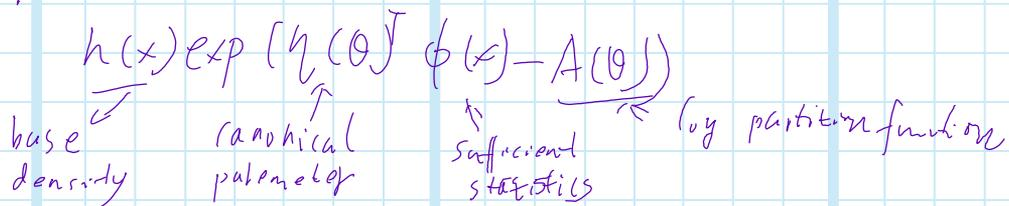 h(x) exp (η(θ)ᵀ ϕ(x) - A(θ))
base density
canonical parameter
sufficient statistics
log partition function